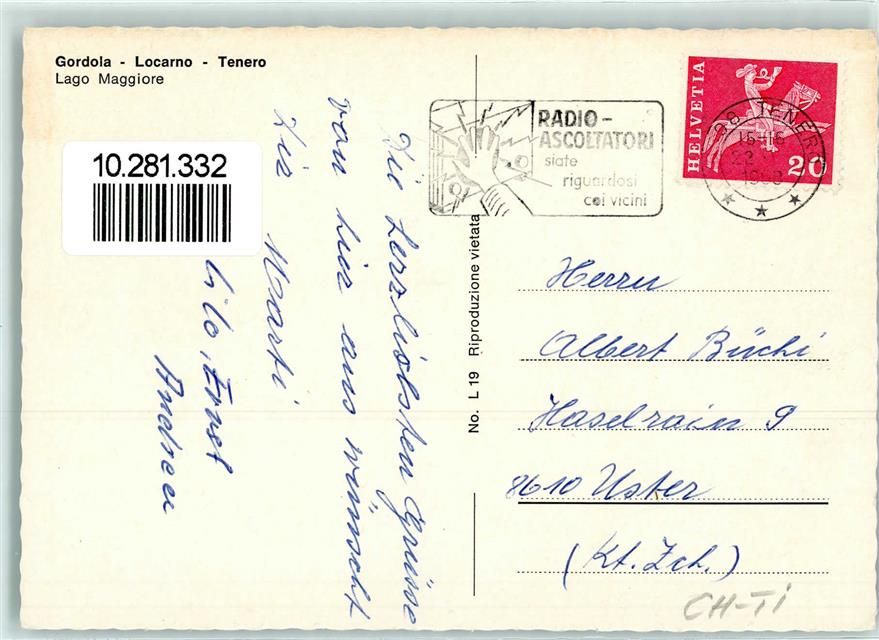 Gordola - Locarno - Tenero
Lago Maggiore
10.281.332
Die herzlichsten Grüsse
von hier aus wünscht
Dir Marti
Lilo, Ernst
Andrea
No. L 19 Riproduzione vietata
RADIO-
ASCOLTATORI
siate
riguardosi
coi vicini
HELVETIA
20
98 TENERO
Herrn
Albert Büchi
Haselrain 9
8610 Uster
(Kt. Zch.)
CH-TI